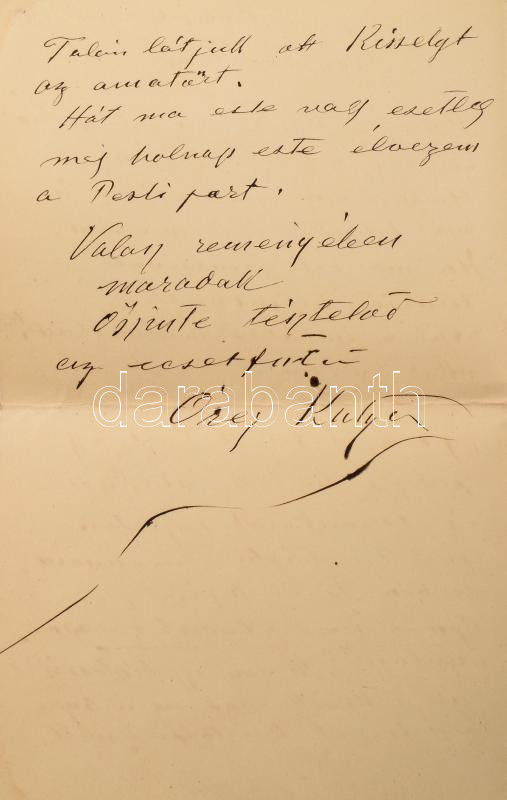 Talán látjuk ott Kisselyt
az amatört.
Hát ma este vagy esetleg
még holnap este élvezem
a Pesti part.
Valan reményében
maradok
Őszinte tisztelőd
az ecset
darabanth
Öreg Kutya